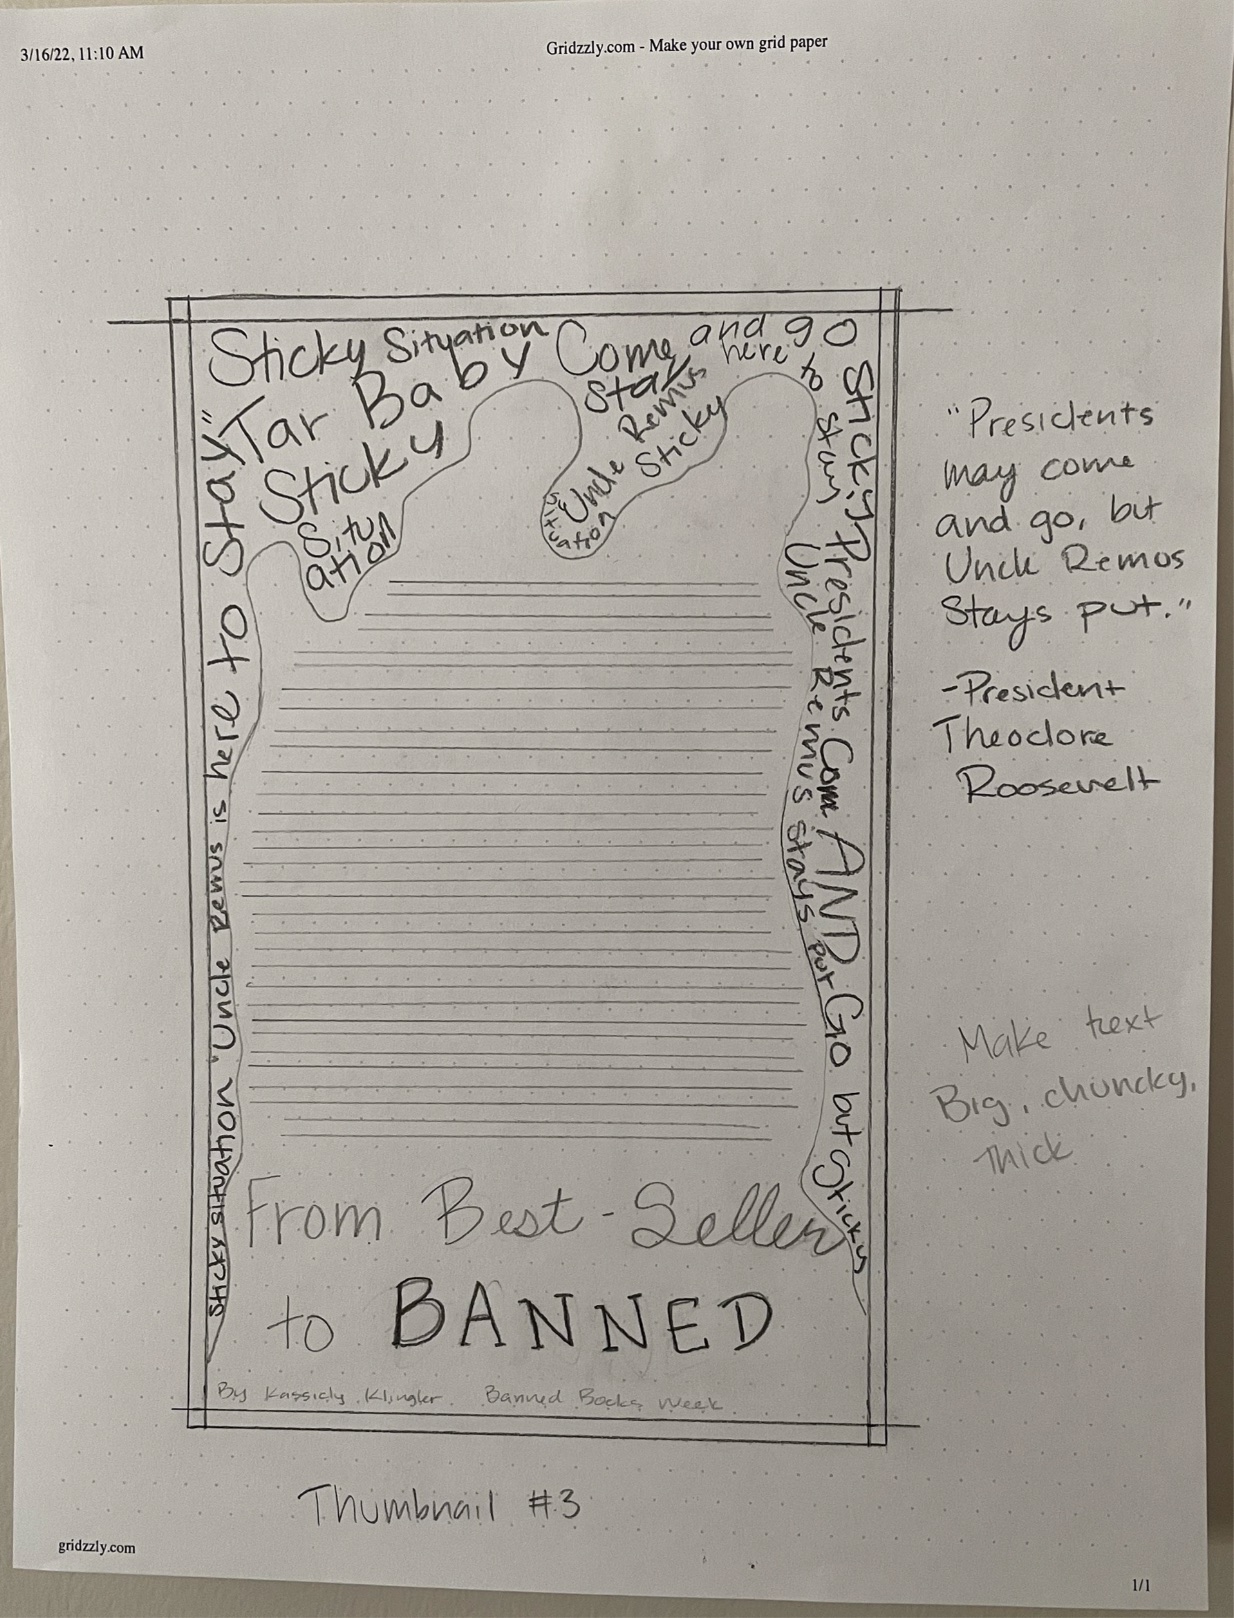 3/16/22, 11:10 AM
Gridzzly.com - Make your own grid paper
Sticky Situation Come and go
here to
Stay
Tar Baby
Sticky
Situ
ation
Uncle Remus
Sticky
Situation
Sticky Presidents Com AND Go but Sticky
stay Uncle Remus stays put
Sticky situation "Uncle Remus is here to Stay"
From Best-Seller
to BANNED
By Kassidy Klingler Banned Books Week
"Presidents
may come
and go, but
Uncle Remus
Stays put."
-President
Theodore
Roosevelt
Make text
Big, chuncky,
thick
Thumbnail #3
gridzzly.com
1/1